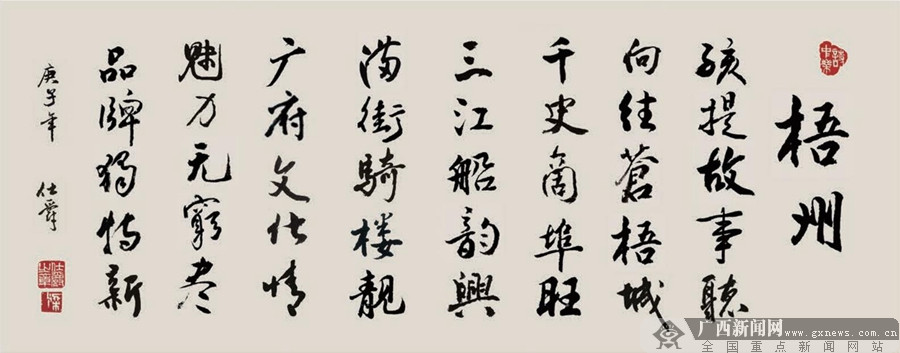 梧州
孩提故事聽
向往蒼梧城
千史商埠旺
三江船韵興
满街騎楼靓
广府文化情
魅力无窮尽
品牌獨特新
庚子年 仕爵
广西新闻网
www.gxnews.com.cn
全国重点新闻网站